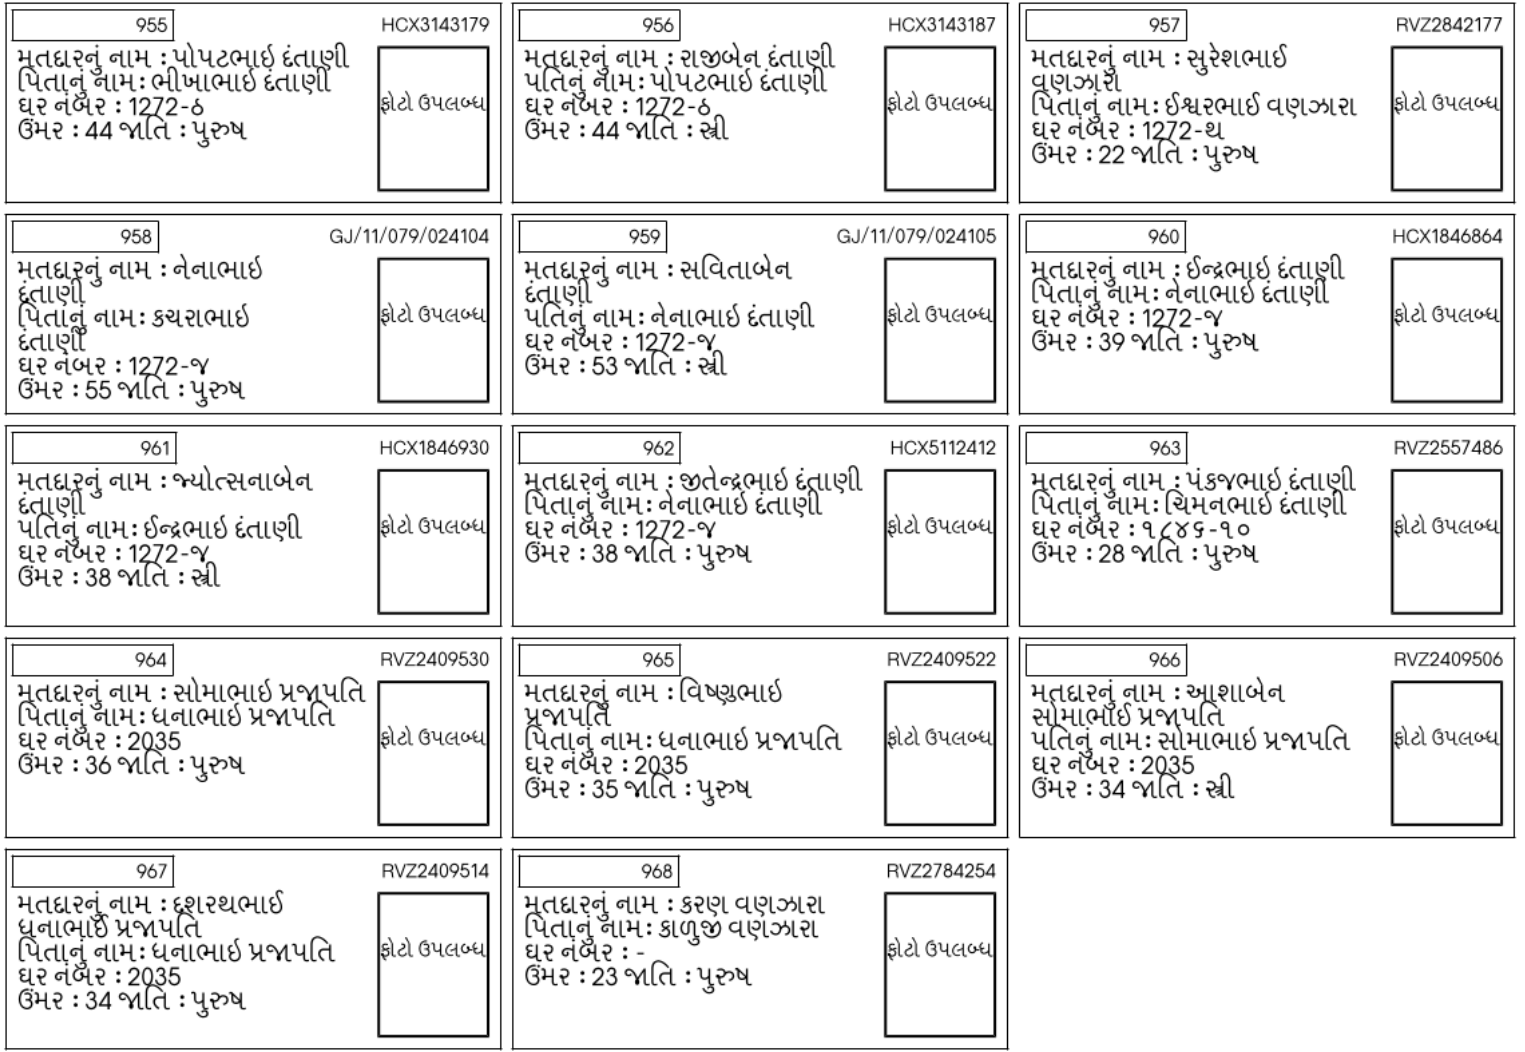 955 HCX3143179
મતદારનું નામ : પોપટભાઇ દંતાણી
પિતાનું નામ: ભીખાભાઇ દંતાણી
ઘર નંબર : 1272-ઠ
ઉંમર : 44 જાતિ : પુરુષ
ફોટો ઉપલબ્ધ
956 HCX3143187
મતદારનું નામ : રાજીબેન દંતાણી
પતિનું નામ: પોપટભાઇ દંતાણી
ઘર નંબર : 1272-ઠ
ઉંમર : 44 જાતિ : સ્ત્રી
ફોટો ઉપલબ્ધ
957 RVZ2842177
મતદારનું નામ : સુરેશભાઈ
વણઝારા
પિતાનું નામ: ઈશ્વરભાઈ વણઝારા
ઘર નંબર : 1272-થ
ઉંમર : 22 જાતિ : પુરુષ
ફોટો ઉપલબ્ધ
958 GJ/11/079/024104
મતદારનું નામ : નેનાભાઇ
દંતાણી
પિતાનું નામ: કચરાભાઇ
દંતાણી
ઘર નંબર : 1272-જ
ઉંમર : 55 જાતિ : પુરુષ
ફોટો ઉપલબ્ધ
959 GJ/11/079/024105
મતદારનું નામ : સવિતાબેન
દંતાણી
પતિનું નામ: નેનાભાઇ દંતાણી
ઘર નંબર : 1272-જ
ઉંમર : 53 જાતિ : સ્ત્રી
ફોટો ઉપલબ્ધ
960 HCX1846864
મતદારનું નામ : ઈન્દ્રભાઇ દંતાણી
પિતાનું નામ: નેનાભાઇ દંતાણી
ઘર નંબર : 1272-જ
ઉંમર : 39 જાતિ : પુરુષ
ફોટો ઉપલબ્ધ
961 HCX1846930
મતદારનું નામ : જ્યોત્સનાબેન
દંતાણી
પતિનું નામ: ઈન્દ્રભાઇ દંતાણી
ઘર નંબર : 1272-જ
ઉંમર : 38 જાતિ : સ્ત્રી
ફોટો ઉપલબ્ધ
962 HCX5112412
મતદારનું નામ : જીતેન્દ્રભાઇ દંતાણી
પિતાનું નામ: નેનાભાઇ દંતાણી
ઘર નંબર : 1272-જ
ઉંમર : 38 જાતિ : પુરુષ
ફોટો ઉપલબ્ધ
963 RVZ2557486
મતદારનું નામ : પંકજભાઇ દંતાણી
પિતાનું નામ: ચિમનભાઇ દંતાણી
ઘર નંબર : ૧૮૪૬-૧૦
ઉંમર : 28 જાતિ : પુરુષ
ફોટો ઉપલબ્ધ
964 RVZ2409530
મતદારનું નામ : સોમાભાઇ પ્રજાપતિ
પિતાનું નામ: ધનાભાઇ પ્રજાપતિ
ઘર નંબર : 2035
ઉંમર : 36 જાતિ : પુરુષ
ફોટો ઉપલબ્ધ
965 RVZ2409522
મતદારનું નામ : વિષ્ણુભાઇ
પ્રજાપતિ
પિતાનું નામ: ધનાભાઇ પ્રજાપતિ
ઘર નંબર : 2035
ઉંમર : 35 જાતિ : પુરુષ
ફોટો ઉપલબ્ધ
966 RVZ2409506
મતદારનું નામ : આશાબેન
સોમાભાઈ પ્રજાપતિ
પતિનું નામ: સોમાભાઇ પ્રજાપતિ
ઘર નંબર : 2035
ઉંમર : 34 જાતિ : સ્ત્રી
ફોટો ઉપલબ્ધ
967 RVZ2409514
મતદારનું નામ : દશરથભાઈ
ધનાભાઈ પ્રજાપતિ
પિતાનું નામ: ધનાભાઇ પ્રજાપતિ
ઘર નંબર : 2035
ઉંમર : 34 જાતિ : પુરુષ
ફોટો ઉપલબ્ધ
968 RVZ2784254
મતદારનું નામ : કરણ વણઝારા
પિતાનું નામ: કાળુજી વણઝારા
ઘર નંબર : -
ઉંમર : 23 જાતિ : પુરુષ
ફોટો ઉપલબ્ધ